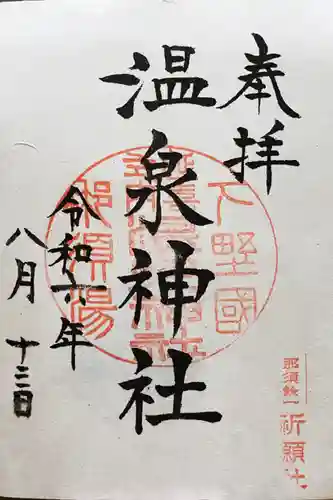 奉拝
温泉神社
令和六年
八月 十三日
下野國
那須湯
那須餘一
祈願社